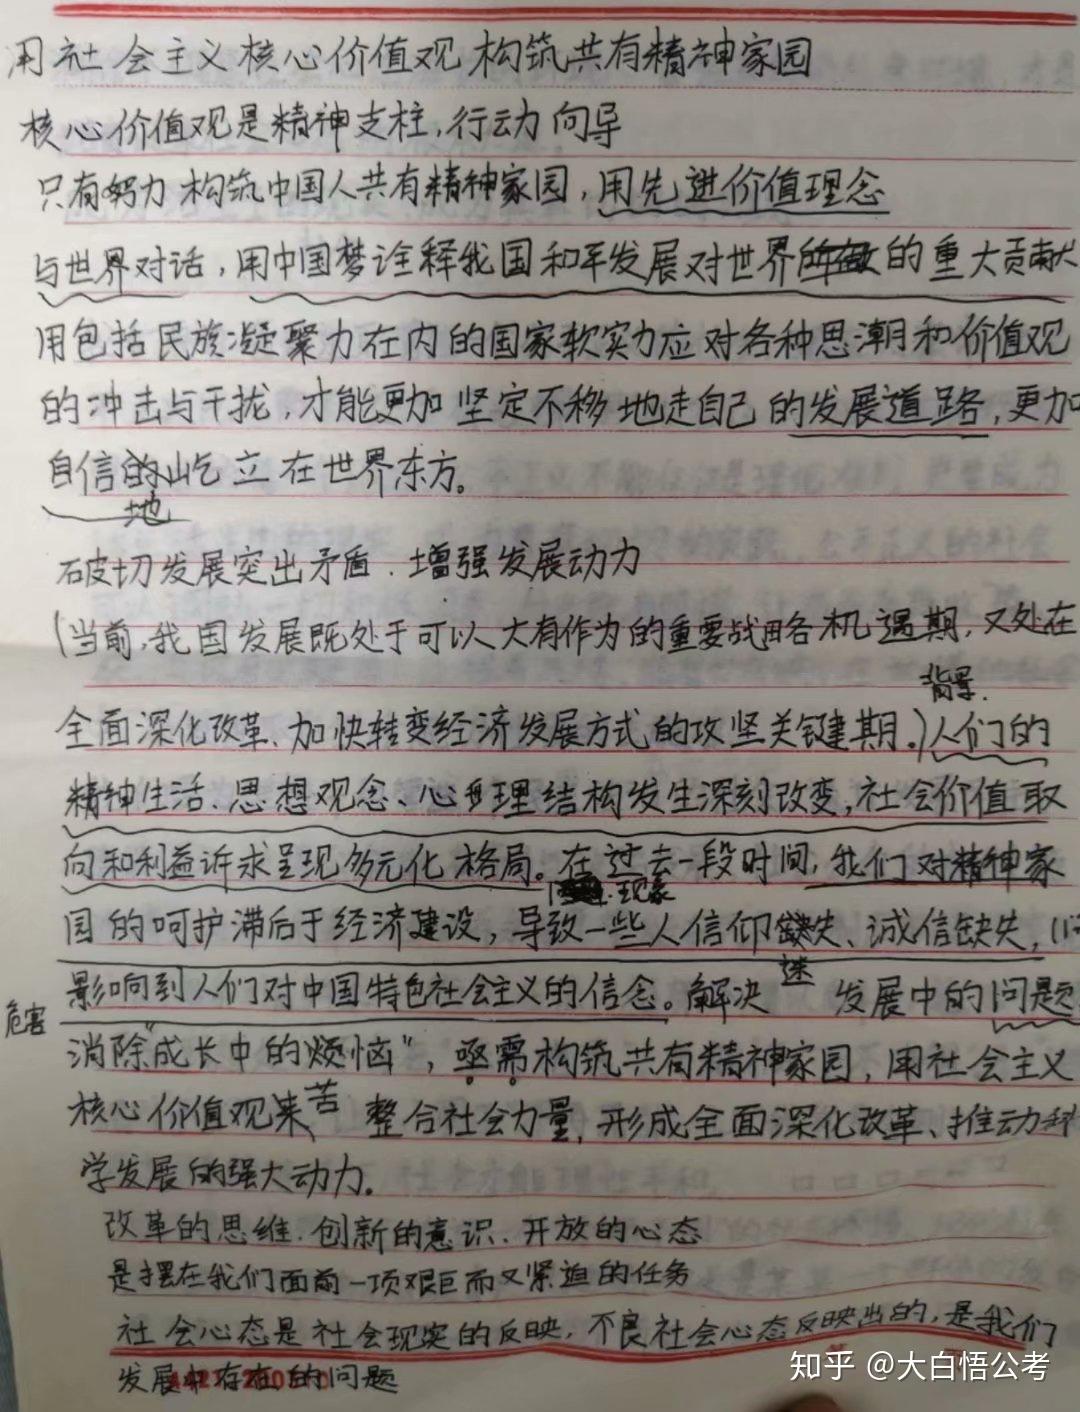 用社会主义核心价值观构筑共有精神家园
核心价值观是精神支柱,行动向导
只有努力构筑中国人共有精神家园,用先进价值理念
与世界对话,用中国梦诠释我国和平发展对世界的重大贡献
用包括民族凝聚力在内的国家软实力应对各种思潮和价值观
的冲击与干扰,才能更加坚定不移地走自己的发展道路,更加
自信的屹立在世界东方。
地
破切发展突出矛盾.增强发展动力
(当前,我国发展既处于可以大有作为的重要战略机遇期,又处在
背景.
全面深化改革、加快转变经济发展方式的攻坚关键期。)人们的
精神生活、思想观念、心理结构发生深刻改变,社会价值取
向和利益诉求呈现多元化格局。在过去一段时间,我们对精神家
现象
园的呵护滞后于经济建设,导致一些人信仰缺失、诚信缺失,
迷
危害 影响到人们对中国特色社会主义的信念。解决 发展中的问题
消除“成长中的烦恼”,亟需构筑共有精神家园,用社会主义
核心价值观来 苦 整合社会力量,形成全面深化改革、推动科
学发展的强大动力。
改革的思维.创新的意识、开放的心态
是摆在我们面前一项艰巨而又紧迫的任务
社会心态是社会现实的反映,不良社会心态反映出的,是我们
发展中存在的问题
知乎 @大白悟公考